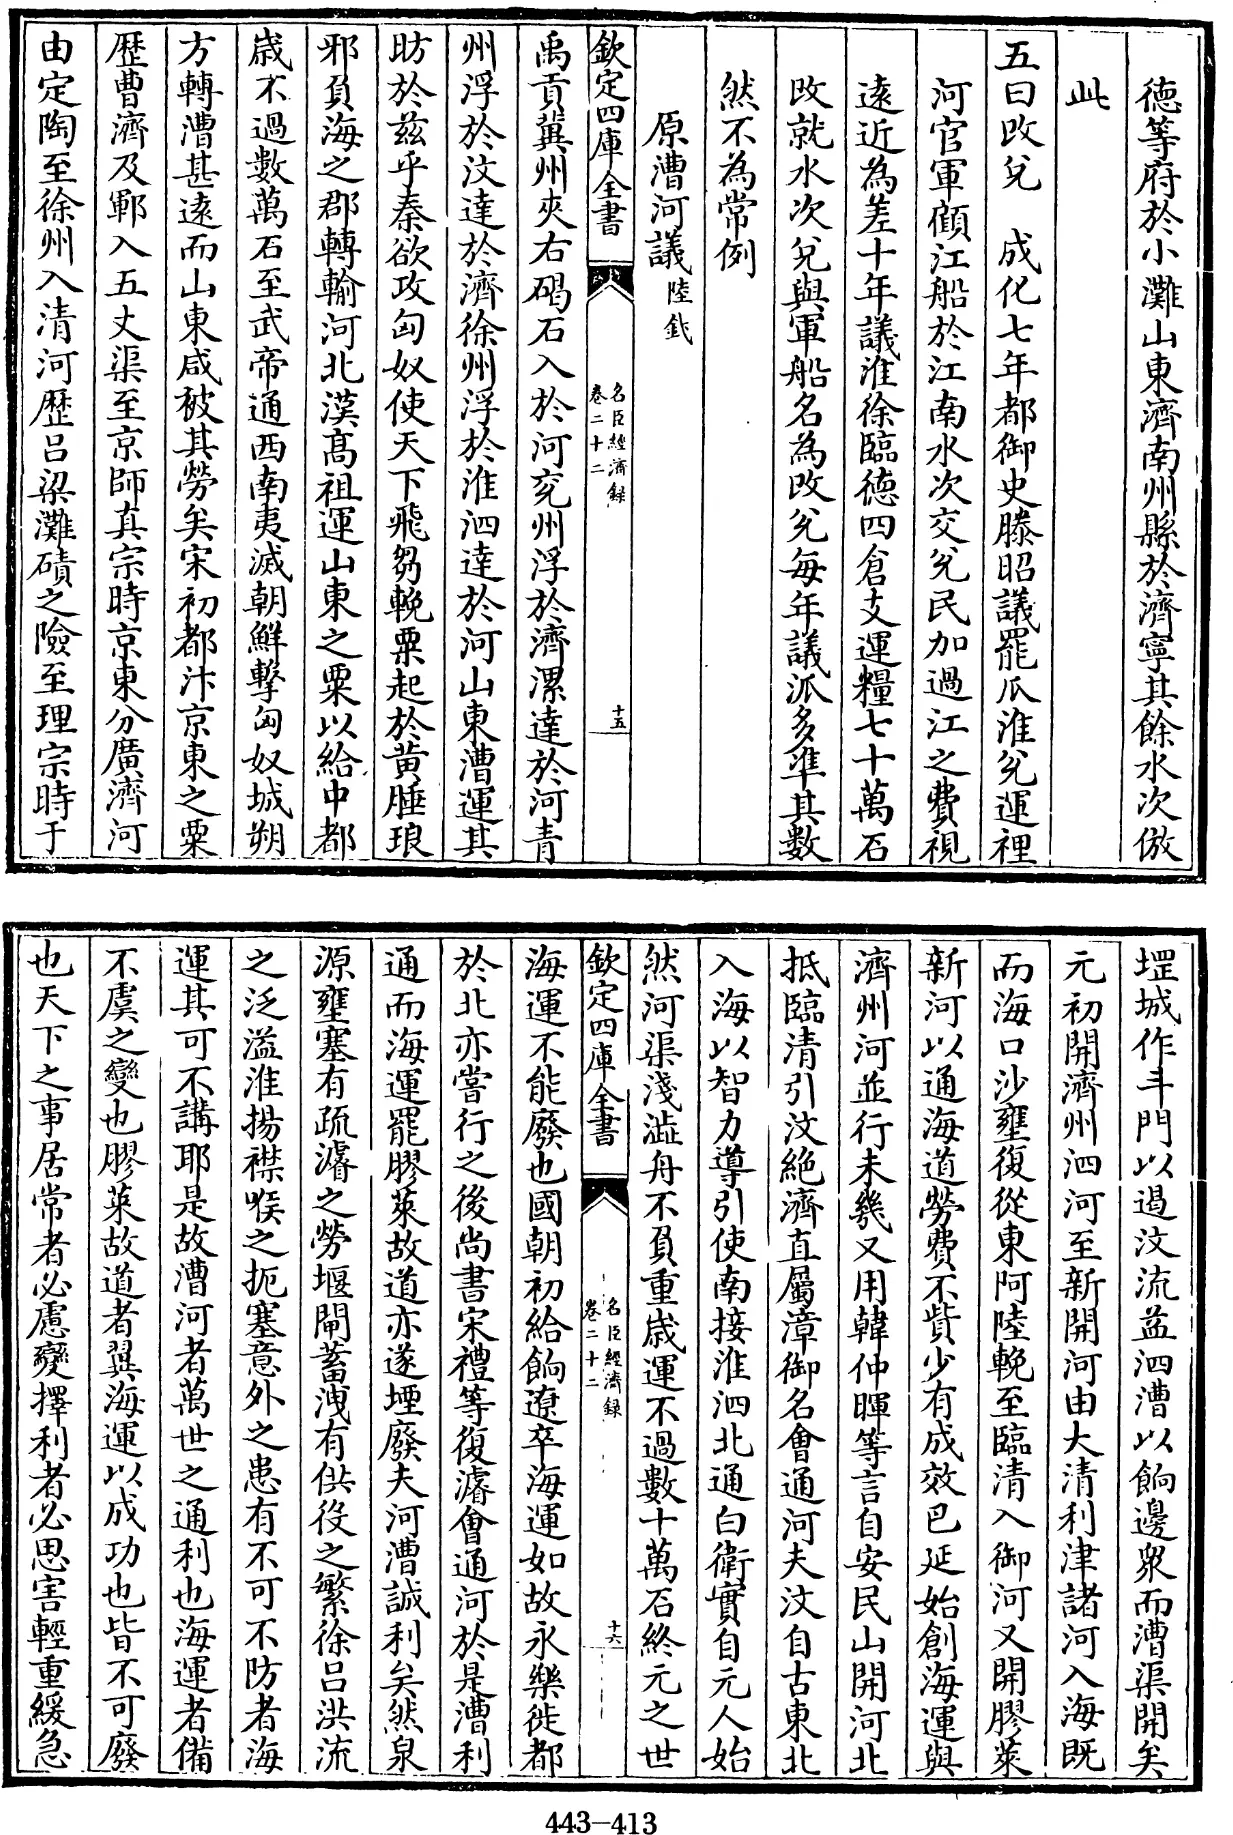 德等府於小灘山東濟南州縣於濟寧其餘水次倣
此
五曰改兌　成化七年都御史滕昭議罷瓜淮兌運裡
河官軍顧江船於江南水次交兌民加過江之費視
遠近為差十年議淮徐臨德四倉支運糧七十萬石
改就水次兌與軍船名為改兌每年議派多準其數
然不為常例
原漕河議 陸釴
欽定四庫全書
名臣經濟録
卷二十二
十五
禹貢冀州夾右碣石入於河兗州浮於濟漯達於河青
州浮於汶達於濟徐州浮於淮泗達於河山東漕運其
昉於茲乎秦欲攻匈奴使天下飛芻輓粟起於黃腄琅
邪負海之郡轉輸河北漢高祖運山東之粟以給中都
歲不過數萬石至武帝通西南夷滅朝鮮擊匈奴城朔
方轉漕甚遠而山東咸被其勞矣宋初都汴京東之粟
歷曹濟及鄆入五丈渠至京師真宗時京東分廣濟河
由定陶至徐州入清河歷呂梁灘磧之險至理宗時于
堽城作斗門以遏汶流益泗漕以餉邊衆而漕渠開矣
元初開濟州泗河至新開河由大清利津諸河入海既
而海口沙壅復從東阿陸輓至臨清入御河又開膠萊
新河以通海道勞費不貲少有成效巴延始創海運與
濟州河並行未幾又用韓仲暉等言自安民山開河北
抵臨清引汶絕濟直屬漳御名會通河夫汶自古東北
入海以智力導引使南接淮泗北通白衛實自元人始
然河渠淺澁舟不負重歲運不過數十萬石終元之世
欽定四庫全書
名臣經濟録
卷二十二
十六
海運不能廢也國朝初給餉遼卒海運如故永樂徙都
於北亦嘗行之後尚書宋禮等復濬會通河於是漕利
通而海運罷膠萊故道亦遂堙廢夫河漕誠利矣然泉
源壅塞有疏濬之勞堰閘蓄洩有供役之繁徐呂洪流
之泛溢淮揚襟喉之扼塞意外之患有不可不防者海
運其可不講耶是故漕河者萬世之通利也海運者備
不虞之變也膠萊故道者翼海運以成功也皆不可廢
也天下之事居常者必慮變擇利者必思害輕重緩急
443-413